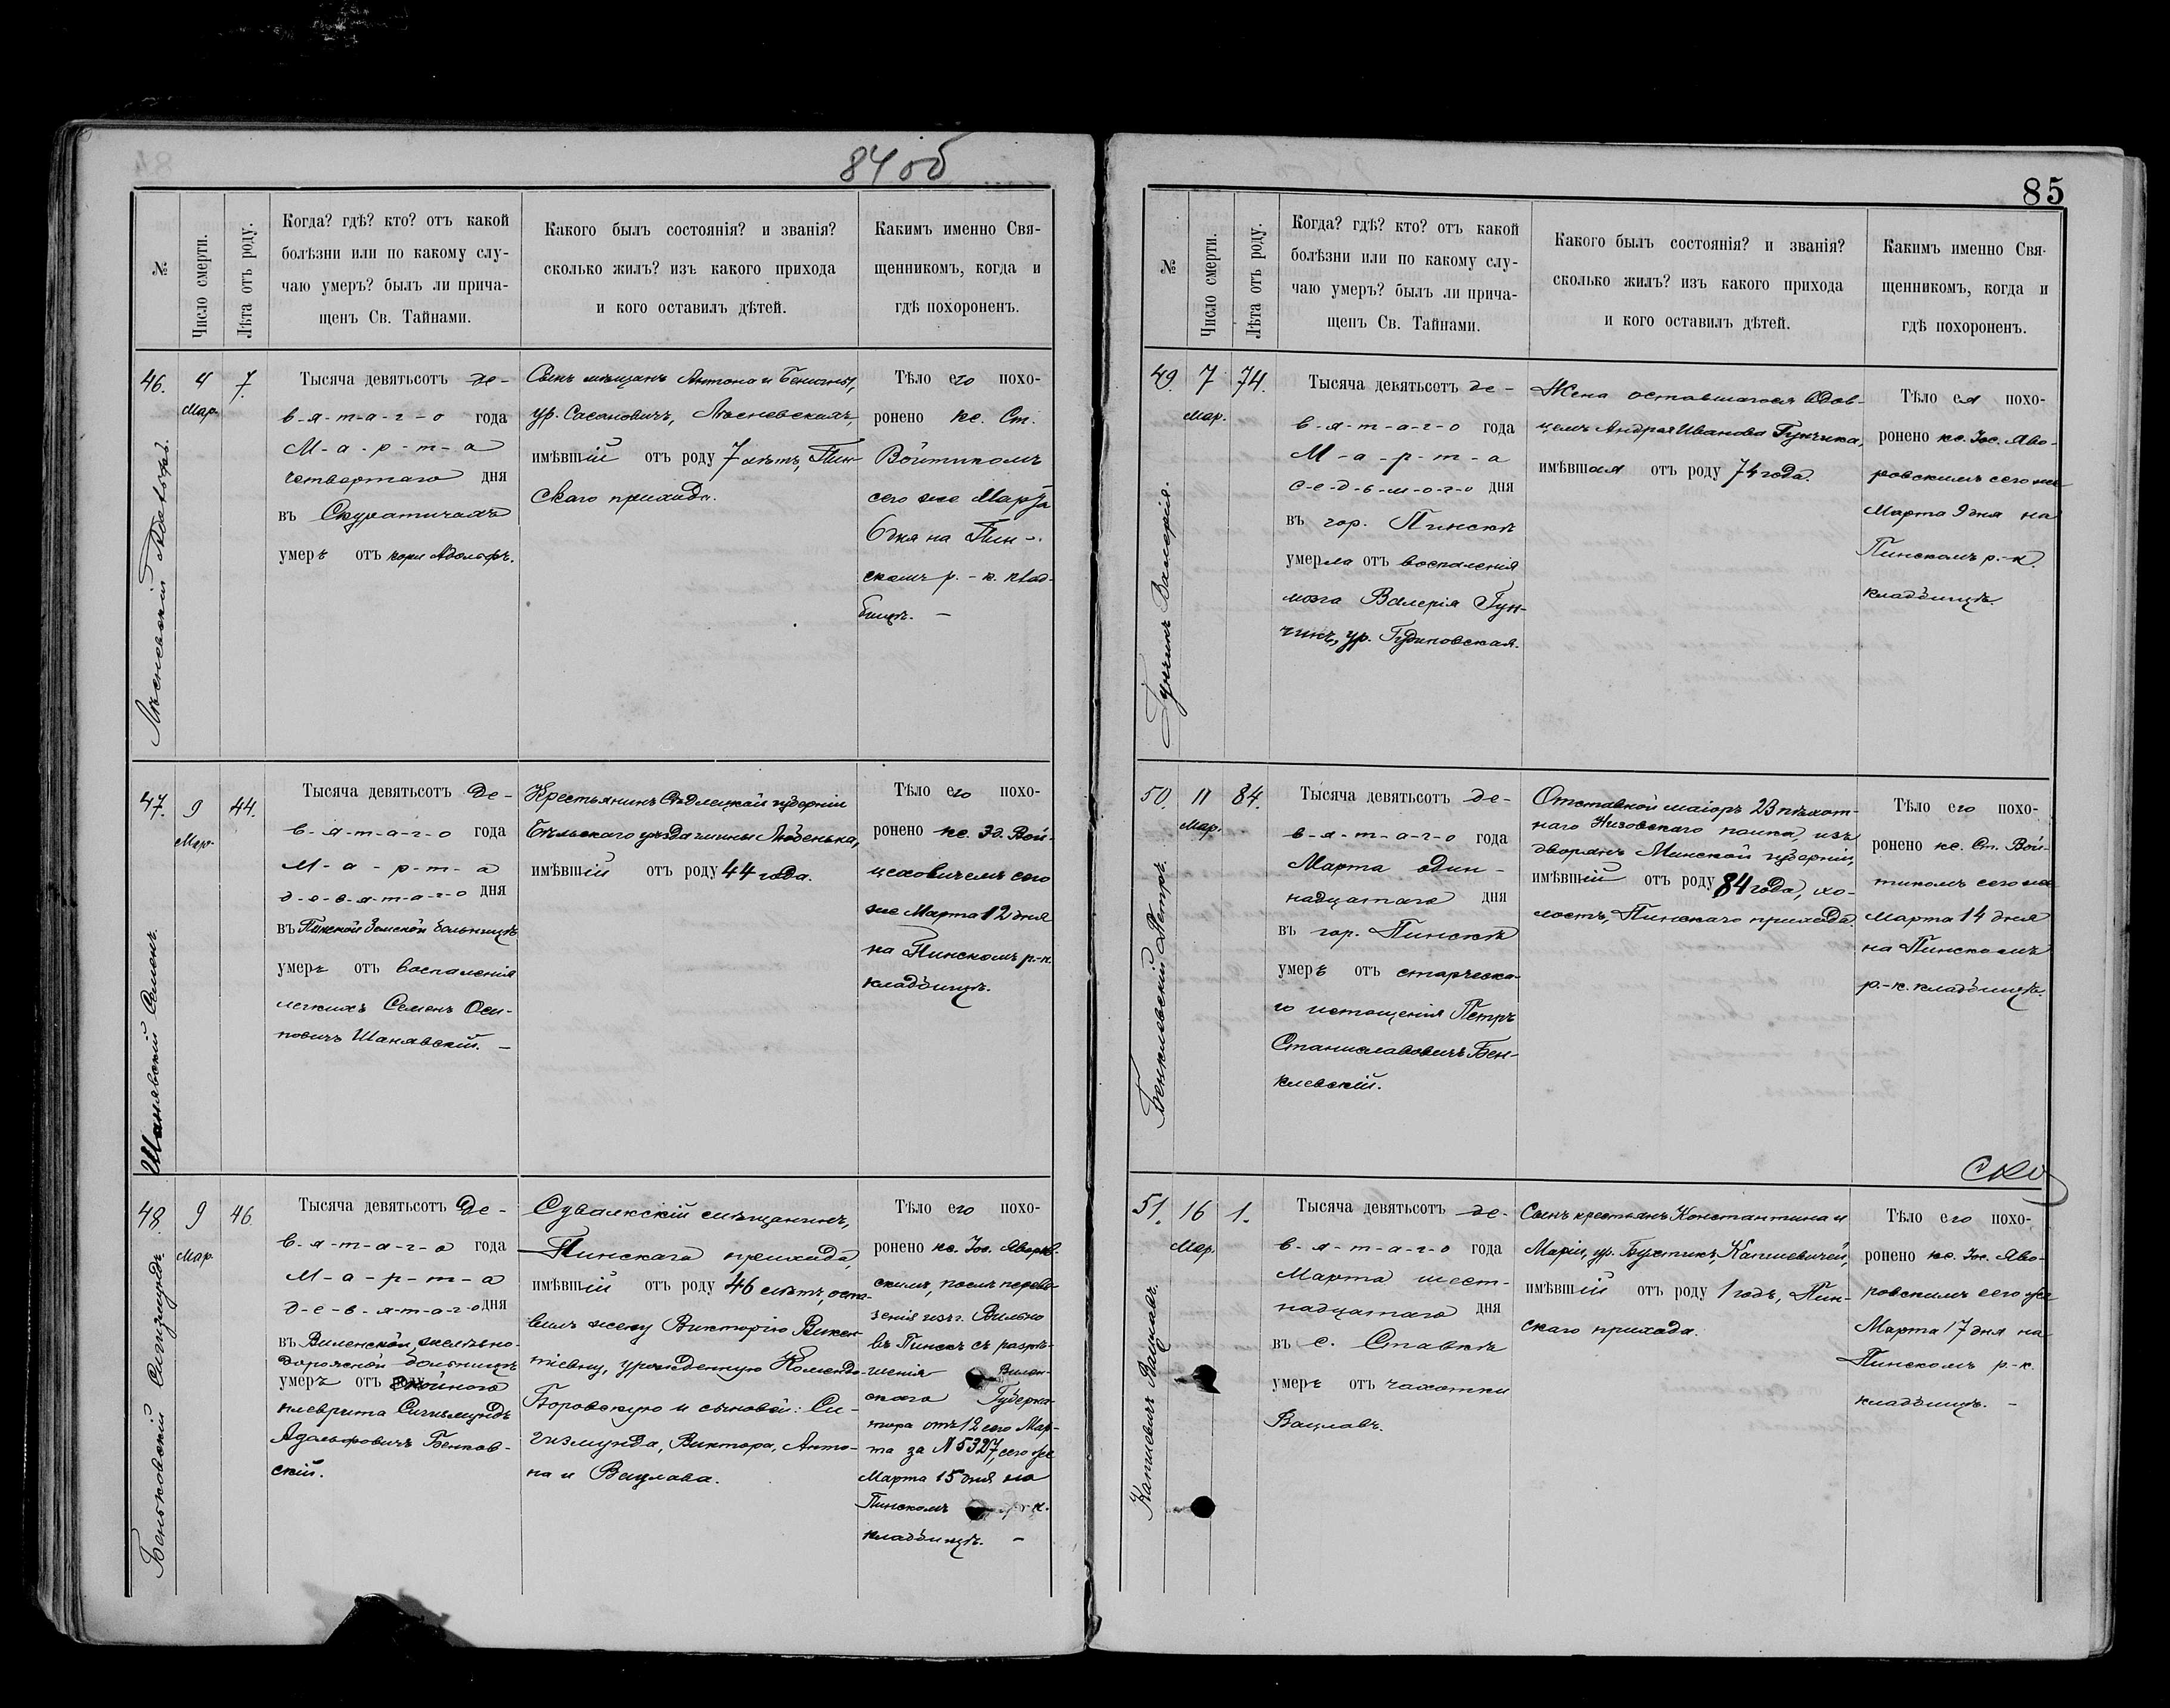 84 об
№
Число смерти.
Лѣта отъ роду.
Когда? гдѣ? кто? отъ какой
болѣзни или по какому слу-
чаю умеръ? былъ ли прича-
щенъ Св. Тайнами.
Какого былъ состоянія? и званія?
сколько жилъ? изъ какого прихода
и кого оставилъ дѣтей.
Какимъ именно Свя-
щенникомъ, когда и
гдѣ похороненъ.
46.
Лѣсневскій Адольфъ.
4
Мар.
7.
Тысяча девятьсотъ де-
в-я-т-а-г-о года
М-а-р-т-а
четвертаго дня
въ Скуратичахъ
умеръ отъ кори Адольфъ.
Сынъ мѣщанъ Антона и Бенигны,
ур. Сасановичъ, Лѣсневскихъ,
имѣвшій отъ роду 7 лѣтъ, Пин-
скаго прихода.
Тѣло его похо-
ронено кс. Ст.
Войтикомъ
сего же Марта
6 дня на Пин-
скомъ р.-к. клад-
бищѣ. —
47.
Шанявскій Семенъ.
9
Мар.
44.
Тысяча девятьсотъ де-
в-я-т-а-г-о года
М-а-р-т-а
д-е-в-я-т-а-г-о дня
въ Пинской Земской больницѣ
умеръ отъ воспаленія
легкихъ Семенъ Оси-
повичъ Шанявскій. —
Крестьянинъ Сѣдлецкой губерніи
Бѣльскаго уѣзда гмины Любенька,
имѣвшій отъ роду 44 года.
Тѣло его похо-
ронено кс. Эд. Вой-
цеховичемъ сего
же Марта 12 дня
на Пинскомъ р.-к.
кладбищѣ.
48
Беньковскій Сигизмундъ.
9
Мар.
46.
Тысяча девятьсотъ де-
в-я-т-а-г-о года
М-а-р-т-а
д-е-в-я-т-а-г-о дня
въ Виленской желѣзно-
дорожной больницѣ
умеръ отъ гнойного
плеврита Сигизмундъ
Адольфовичъ Беньков-
скій.
Сувалкскій мѣщанинъ,
Пинскаго прихода,
имѣвшій отъ роду 46 лѣтъ, оста-
вилъ жену Викторію Викен-
тіевну, урожденную Комендо-
Боровскую и сыновей: Си-
гизмунда, Виктора, Анто-
на и Вацлава.
Тѣло его похо-
ронено кс. Іос. Яворов-
скимъ, послѣ переве-
зенія изъ г. Вильно
въ Пинскъ съ разрѣ-
шенія Вилен-
скаго Губерна-
тора отъ 12 сего Мар-
та за № 5327, сего же
Марта 15 дня на
Пинскомъ р-к.
кладбищѣ. —
85
№
Число смерти.
Лѣта отъ роду.
Когда? гдѣ? кто? отъ какой
болѣзни или по какому слу-
чаю умеръ? былъ ли прича-
щенъ Св. Тайнами.
Какого былъ состоянія? и званія?
сколько жилъ? изъ какого прихода
и кого оставилъ дѣтей.
Какимъ именно Свя-
щенникомъ, когда и
гдѣ похороненъ.
49.
Гунчикъ Валерія.
7
Мар.
74.
Тысяча девятьсотъ де-
в-я-т-а-г-о года
М-а-р-т-а
с-е-д-ь-м-о-г-о дня
въ гор. Пинскѣ
умерла отъ воспаленія
мозга Валерія Гун-
чикъ, ур. Гудиновская.
Жена оставшагося вдов-
цемъ Андрея Иванова Гунчика,
имѣвшая отъ роду 74 года.
Тѣло ея похо-
ронено кс. Іос. Яво-
ровскимъ сего же
Марта 9 дня на
Пинскомъ р.-к.
кладбищѣ.
50.
Бенклевскій Петръ.
11
Мар.
84.
Тысяча девятьсотъ де-
в-я-т-а-г-о года
Марта один-
надцатаго дня
въ гор. Пинскѣ
умеръ отъ старческа-
го истощенія Петръ
Станиславовичъ Бен-
клевскій.
Отставной маіоръ 23 пѣхот-
наго Низовскаго полка, изъ
дворянъ Минской губерніи,
имѣвшій отъ роду 84 года, хо-
лостъ, Пинскаго прихода.
Тѣло его похо-
ронено кс. Ст. Вой-
тикомъ сего же
Марта 14 дня
на Пинскомъ
р.-к. кладбищѣ.
51.
Капшевичъ Вацлавъ.
16
Мар.
1.
Тысяча девятьсотъ де-
в-я-т-а-г-о года
Марта шест-
надцатаго дня
въ с. Ставкѣ
умеръ отъ чахотки
Вацлавъ.
Сынъ крестьянъ Константина и
Маріи, ур. Бухтикъ, Капшевичей,
имѣвшій отъ роду 1 годъ, Пин-
скаго прихода.
Тѣло его похо-
ронено кс. Іос. Яво-
ровскимъ сего же
Марта 17 дня на
Пинскомъ р-к.
кладбищѣ. —